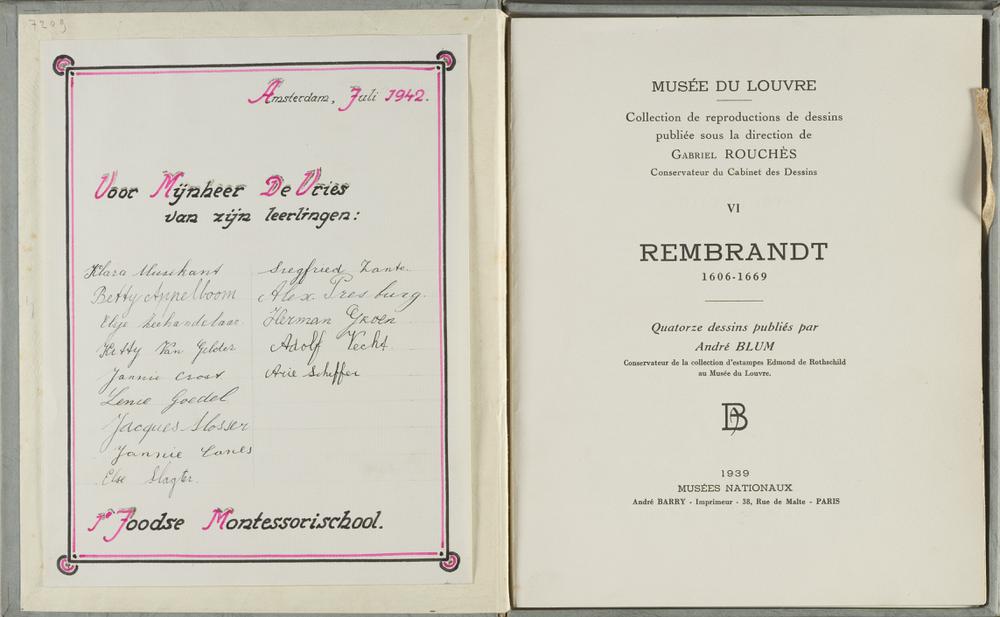 7209
Amsterdam, Juli 1942.
Voor Mijnheer De Vries
van zijn leerlingen:
Klara Musikant
Betty Appelboom
Elsje
Kitty Van Gelder
Jannie Crost
Lenie Goedel
Jacques Slosser
Jannie Cones
Else Slagter.
Siegfried
Alex Presburg.
Herman Groen
Adolf Vecht.
Arie Schiffer
1e Joodse Montessorischool.
MUSÉE DU LOUVRE
Collection de reproductions de dessins
publiée sous la direction de
GABRIEL ROUCHÈS
Conservateur du Cabinet des Dessins
VI
REMBRANDT
1606-1669
Quatorze dessins publiés par
André BLUM
Conservateur de la collection d'estampes Edmond de Rothschild
au Musée du Louvre.
1939
MUSÉES NATIONAUX
André BARRY - Imprimeur - 38, Rue de Malte - PARIS